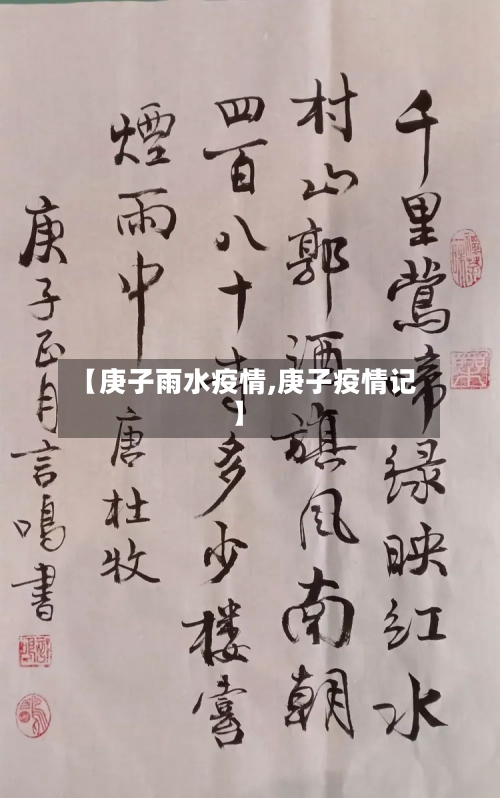 千里鶯啼绿映红水
村山郭酒旗风南朝
四百八十寺多少楼臺
煙雨中 唐杜牧
庚子正月言鳴書
【庚子雨水疫情,庚子疫情记
】